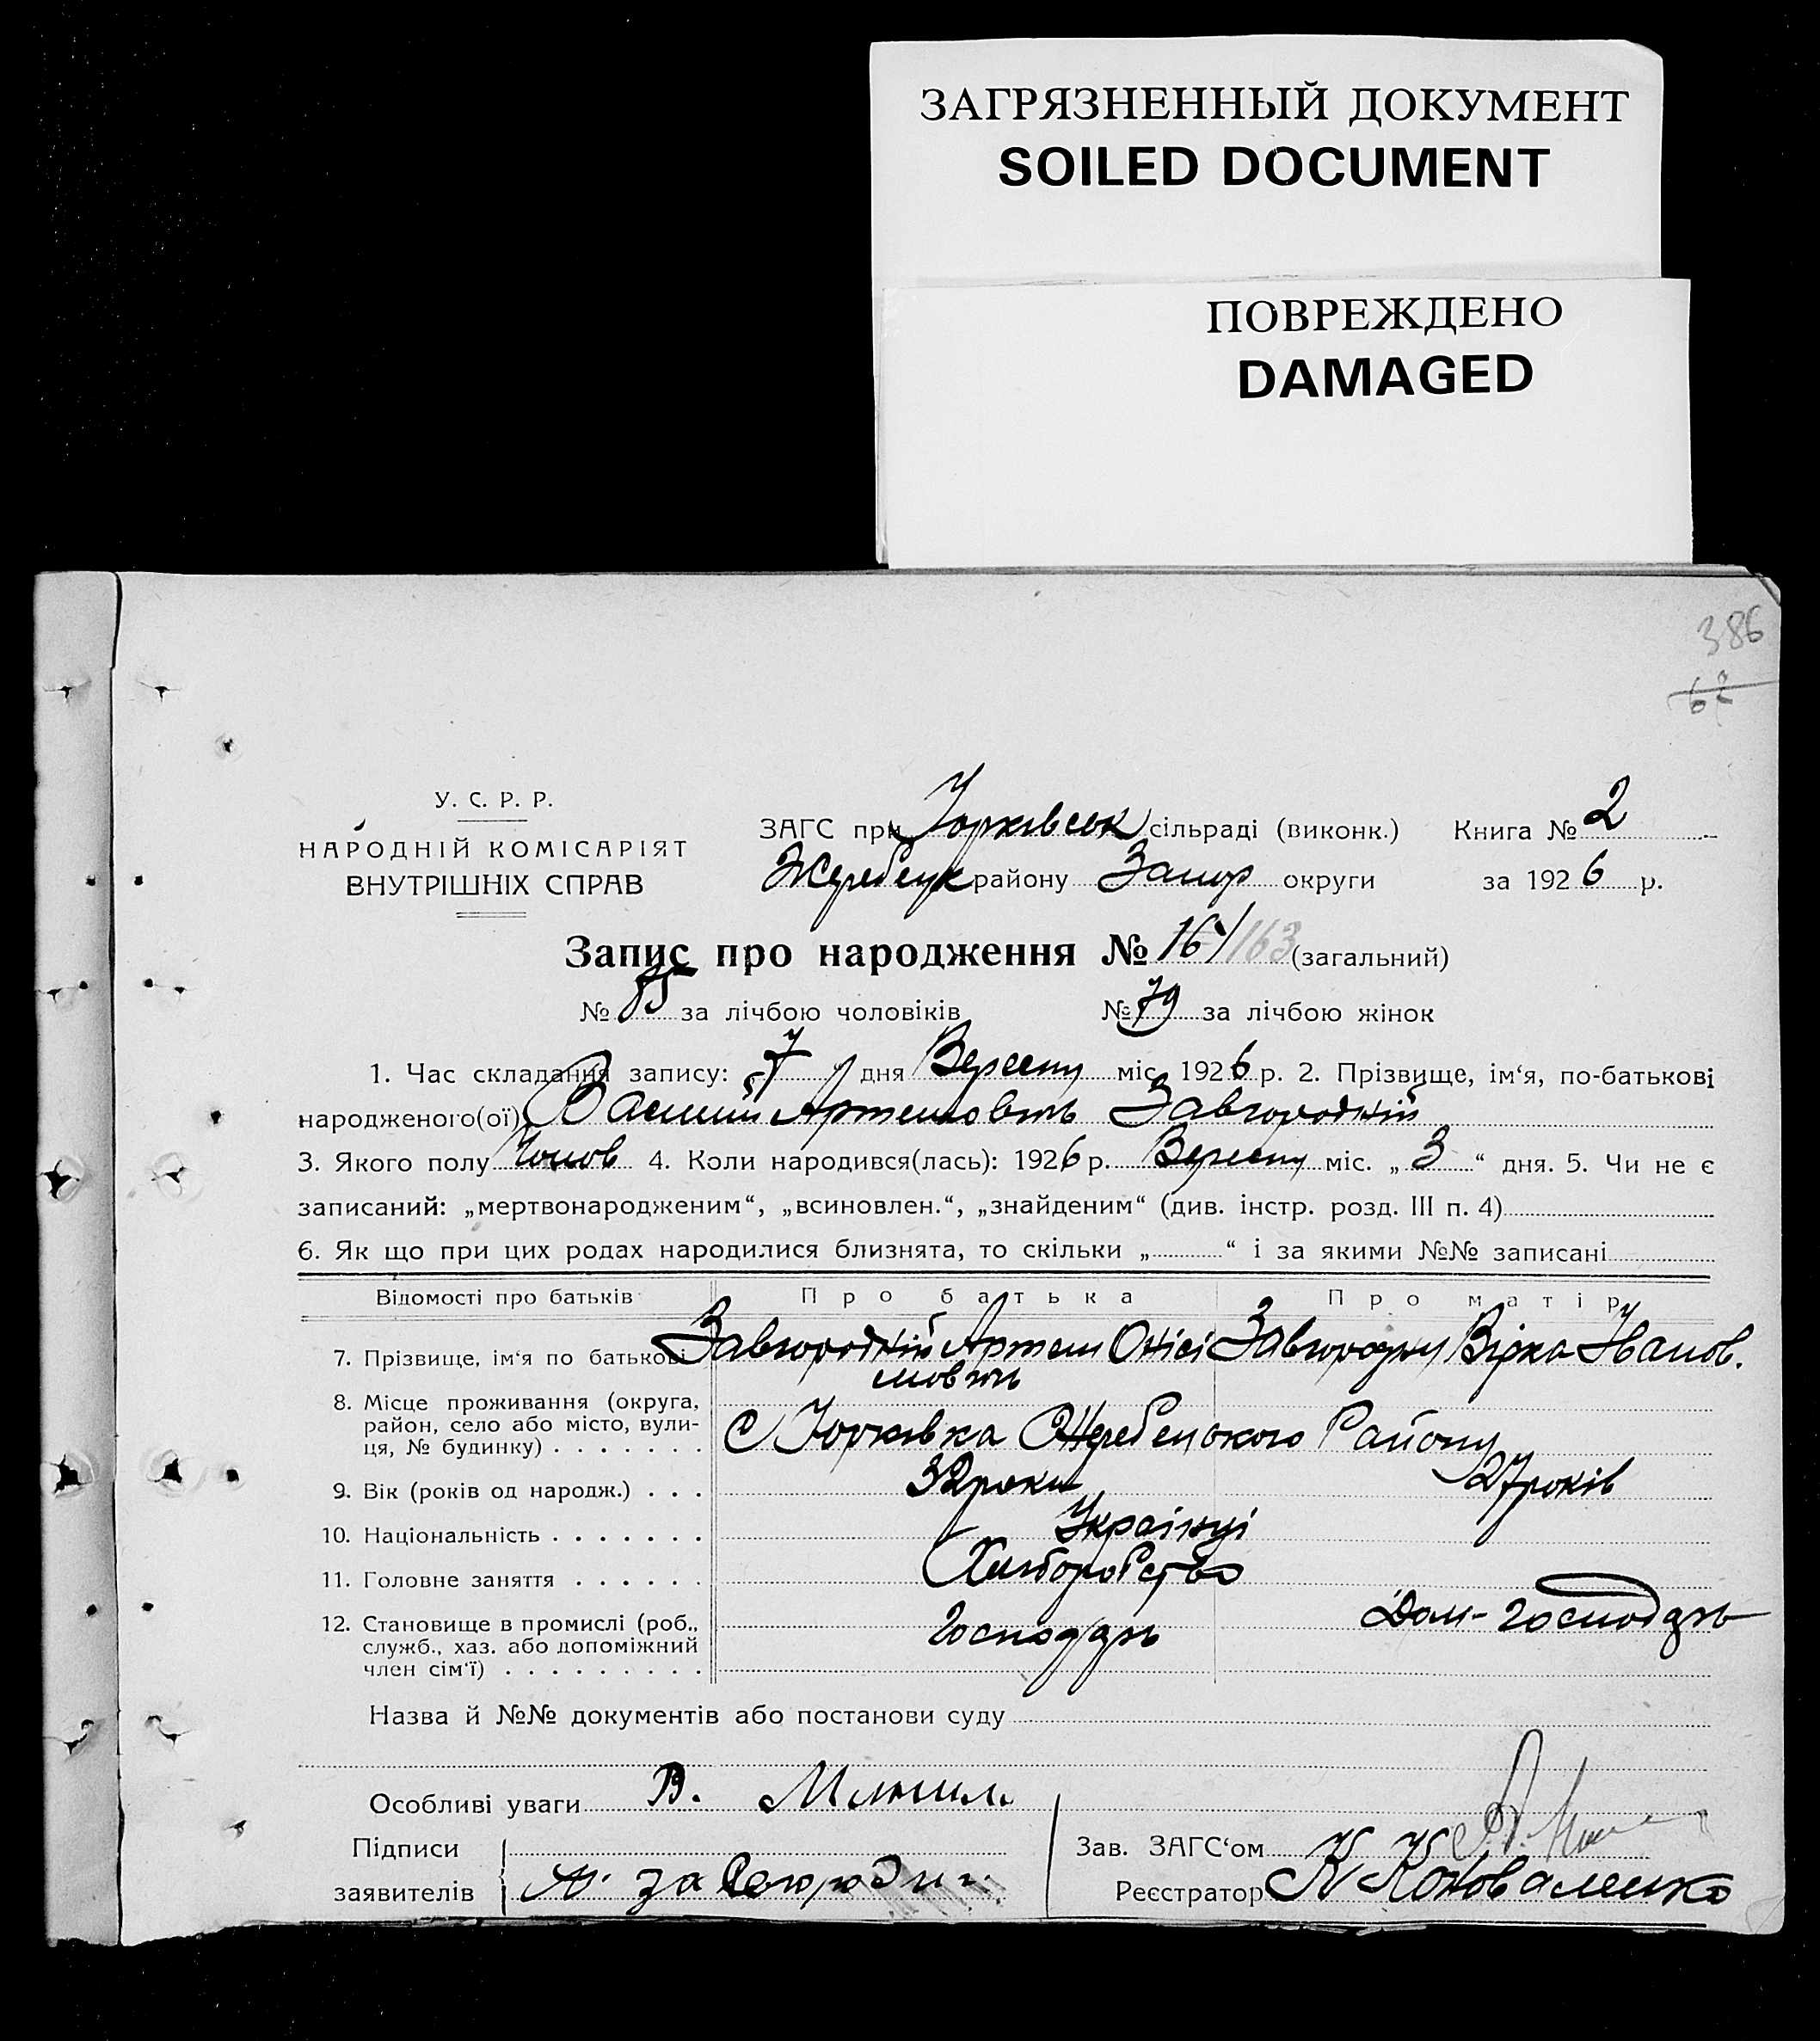 ЗАГРЯЗНЕННЫЙ ДОКУМЕНТ
SOILED DOCUMENT
ПОВРЕЖДЕНО
DAMAGED
386
У. С. Р. Р.
НАРОДНІЙ КОМІСАРІЯТ
ВНУТРІШНІХ СПРАВ
ЗАГС при Юрківськ сільраді (виконк.) Книга № 2
Жеребецьк району Запор округи за 1926 р.
Запис про народження № 163 (загальний)
№ 85 за лічбою чоловіків № 79 за лічбою жінок
1. Час складання запису: 7 дня Вересня міс. 1926 р. 2. Прізвище, ім‘я, по-батькові
народженого(ої) Василій Артемовичь Завгородній
3. Якого полу Чолов 4. Коли народився(лась): 1926 р. Вересня міс. „3“ дня. 5. Чи не є
записаний: „мертвонародженим“, „всиновлен.“, „знайденим“ (див. інстр. розд. III п. 4)
6. Як що при цих родах народилися близнята, то скільки „ “ і за якими №№ записані
Відомості про батьків Про батька Про матір
7. Прізвище, ім‘я по батькові Завгородній Артем Онісімович Завгородня Вірка Іванов.
8. Місце проживання (округа, район, село або місто, вулиця, № будинку) с Юрківка Жеребецького Району
9. Вік (років од народж.) 32 роки 27 років
10. Національність Українці
11. Головне заняття Хліборобство
12. Становище в промислі (роб., служб., хаз. або допоміжний член сім‘ї) Господарь Дом-господарь
Назва й №№ документів або постанови суду
Особливі уваги В.
Підписи
заявителів А.
Зав. ЗАГС‘ом
Реєстратор К Коноваленко